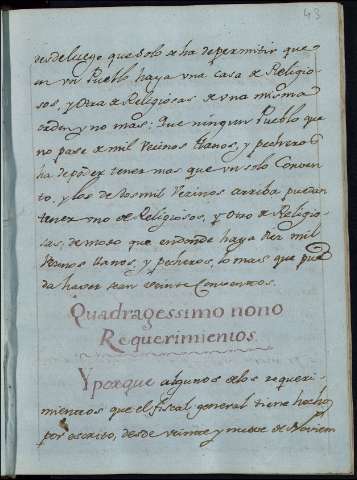 43
desde luego que solo se ha de permitir que
en un Pueblo haya una casa de Religio-
sos, y otra de Religiosas de una misma
orden y no mas: Que ningun Pueblo que
no pase de mil Vecinos llanos, y pecheros
ha de poder tener mas que un solo Conven-
to, y los de dos mil Vezinos arriba puedan
tener uno de Religiosos, y otro de Religio-
sas, de modo que en donde haya diez mil
Vecinos llanos, y pecheros, lo mas que pue-
da haver sean veinte Conventos.
Quadragessimo nono
Requerimientos.
Y porque algunos de los requeri-
mientos que el fiscal general tiene hechos
por escrito, desde veinte y nueve de Noviem